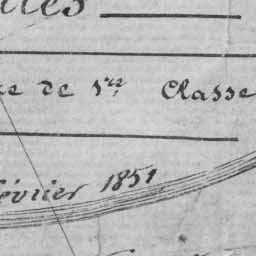 lles
ce de 1re Classe
février 1851